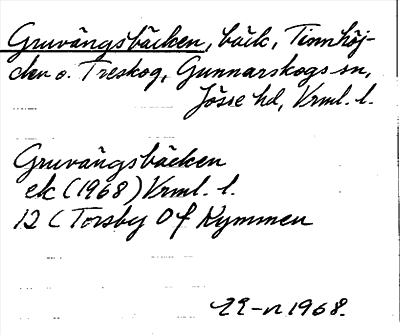 Gruvängsbäcken, bäck, Timhöj-
den o. Treskog, Gunnarskogs sn,
Jösse hd, Vrml. l.
Gruvängsbäcken
ek (1968) Vrml. l.
12 C Torsby Of Kymmen
1968.